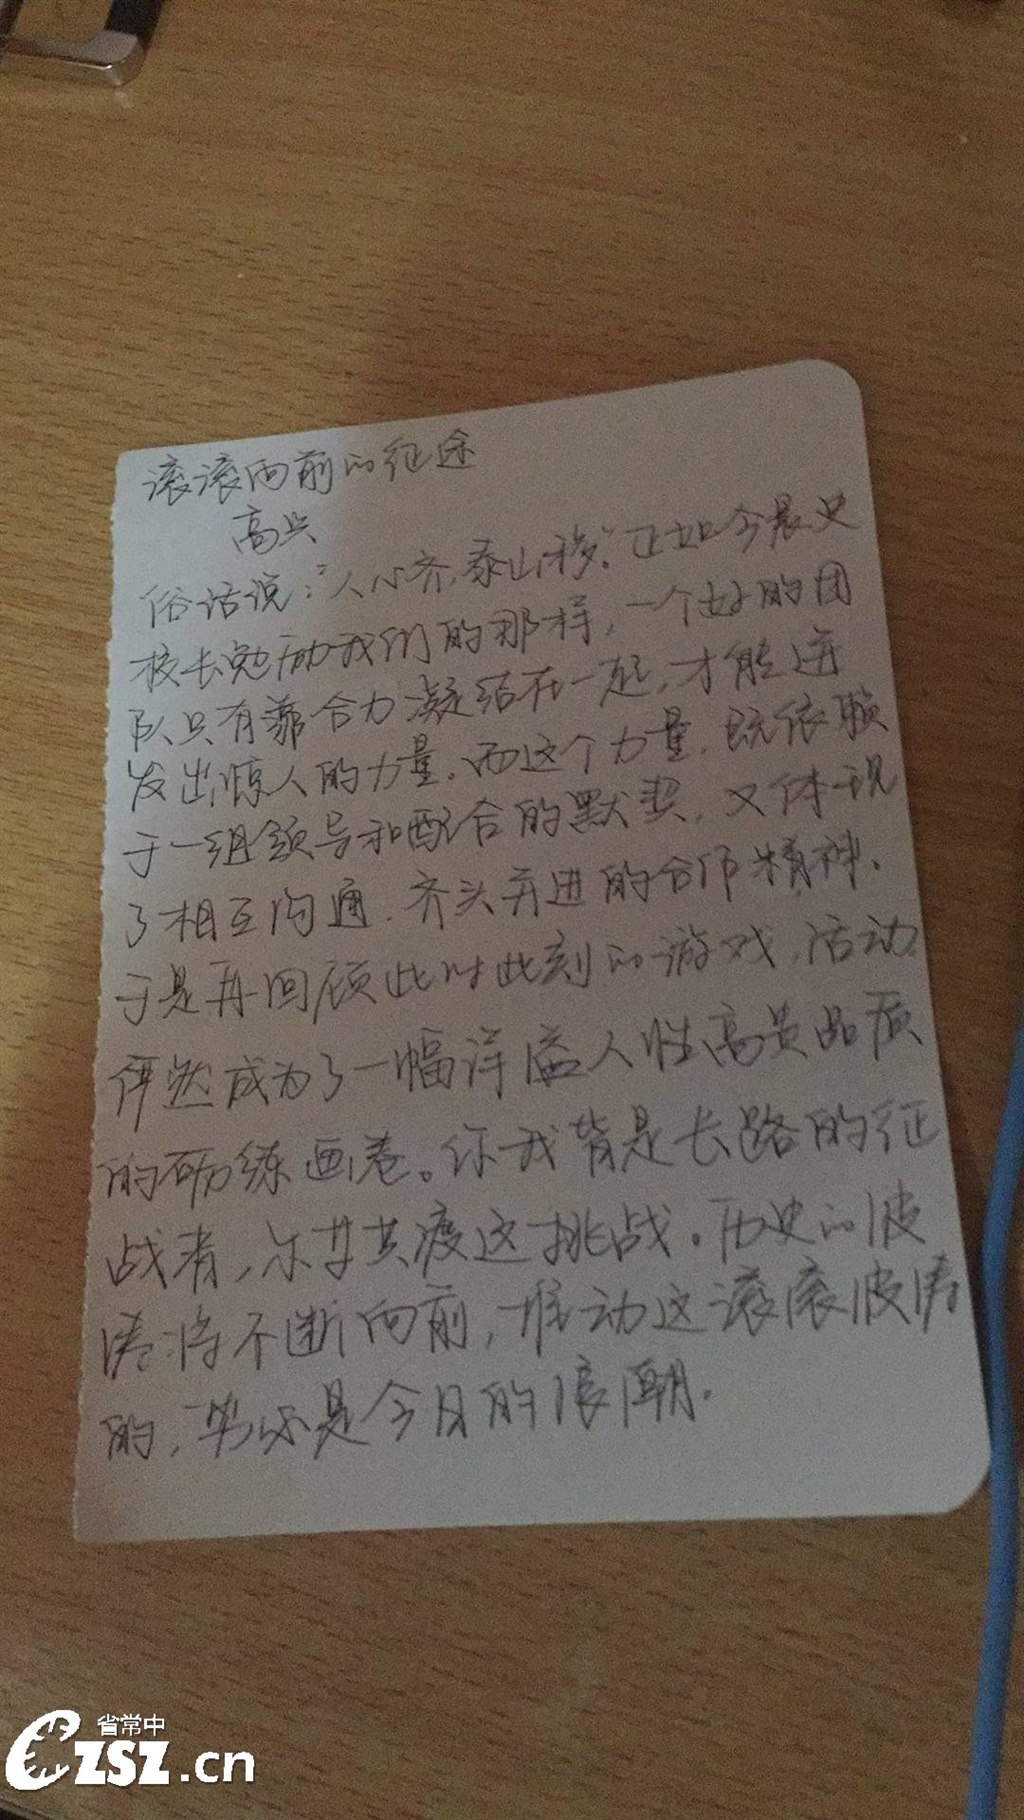 滚滚向前的征途
高兴
俗话说："人心齐,泰山移."正如今晨史
校长勉励我们的那样,一个好的团
队只有靠合力凝结在一起,才能迸
发出惊人的力量.而这个力量.既依赖
于一组领导和配合的默契,又体现
了相互沟通.齐头并进的合作精神.
于是再回顾此时此刻的游戏,活动
俨然成为了一幅洋溢人性高贵品质
的砺练画卷。你我皆是长路的征
战者,尔等共渡这挑战。历史的波
涛将不断向前,推动这滚滚波涛
的,当然是今日的浪潮.
省常中
CZSZ.cn